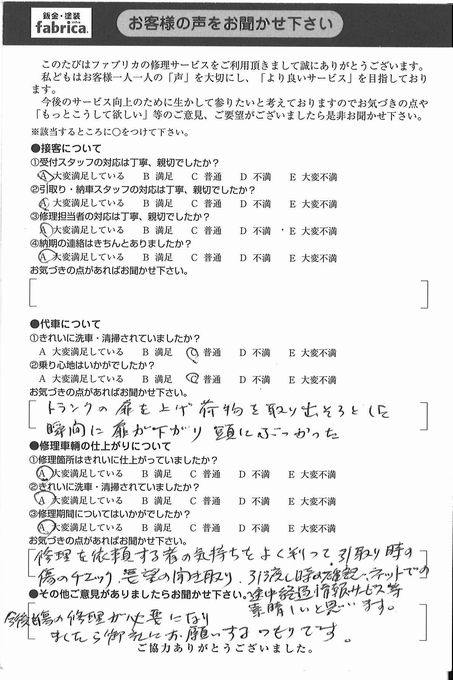 鈑金・塗装
fabrica.
お客様の声をお聞かせ下さい
このたびはファブリカの修理サービスをご利用頂きまして誠にありがとうございます。
私どもはお客様一人一人の「声」を大切にし、「より良いサービス」を目指しており
ます。
今後のサービス向上のために生かして参りたいと考えておりますのでお気づきの点や
「もっとこうして欲しい」等のご意見、ご要望がございましたら是非お聞かせ下さい。
※該当するところに○をつけて下さい。
●接客について
①受付スタッフの対応は丁寧、親切でしたか?
A 大変満足している B 満足 C 普通 D 不満 E 大変不満
②引取り・納車スタッフの対応は丁寧、親切でしたか?
A 大変満足している B 満足 C 普通 D 不満 E 大変不満
③修理担当者の対応は丁寧、親切でしたか?
A 大変満足している B 満足 C 普通 D 不満 E 大変不満
④納期の連絡はきちんとありましたか?
A 大変満足している B 満足 C 普通 D 不満 E 大変不満
お気づきの点があればお聞かせ下さい。
●代車について
①きれいに洗車・清掃されていましたか?
A 大変満足している B 満足 C 普通 D 不満 E 大変不満
②乗り心地はいかがでしたか?
A 大変満足している B 満足 C 普通 D 不満 E 大変不満
お気づきの点があればお聞かせ下さい。
トランクの扉を上げ荷物を取り出そうとした
瞬間に扉が下がり頭にぶつかった
●修理車輌の仕上がりについて
①修理箇所はきれいに仕上がっていましたか?
A 大変満足している B 満足 C 普通 D 不満 E 大変不満
②きれいに洗車・清掃されていましたか?
A 大変満足している B 満足 C 普通 D 不満 E 大変不満
③修理期間についてはいかがでしたか?
A 大変満足している B 満足 C 普通 D 不満 E 大変不満
お気づきの点があればお聞かせ下さい。
修理を依頼する者の気持ちをよく判って、引取り時の
傷のチェック、要望の聞き取り、引渡し時の確認、ネットでの
途中経過情報サービス等
素晴しいと思います。
●その他ご意見がありましたらお聞かせ下さい。
今後傷の修理が必要になり
ましたら御社にお願いするつもりです。
ご協力ありがとうございました。